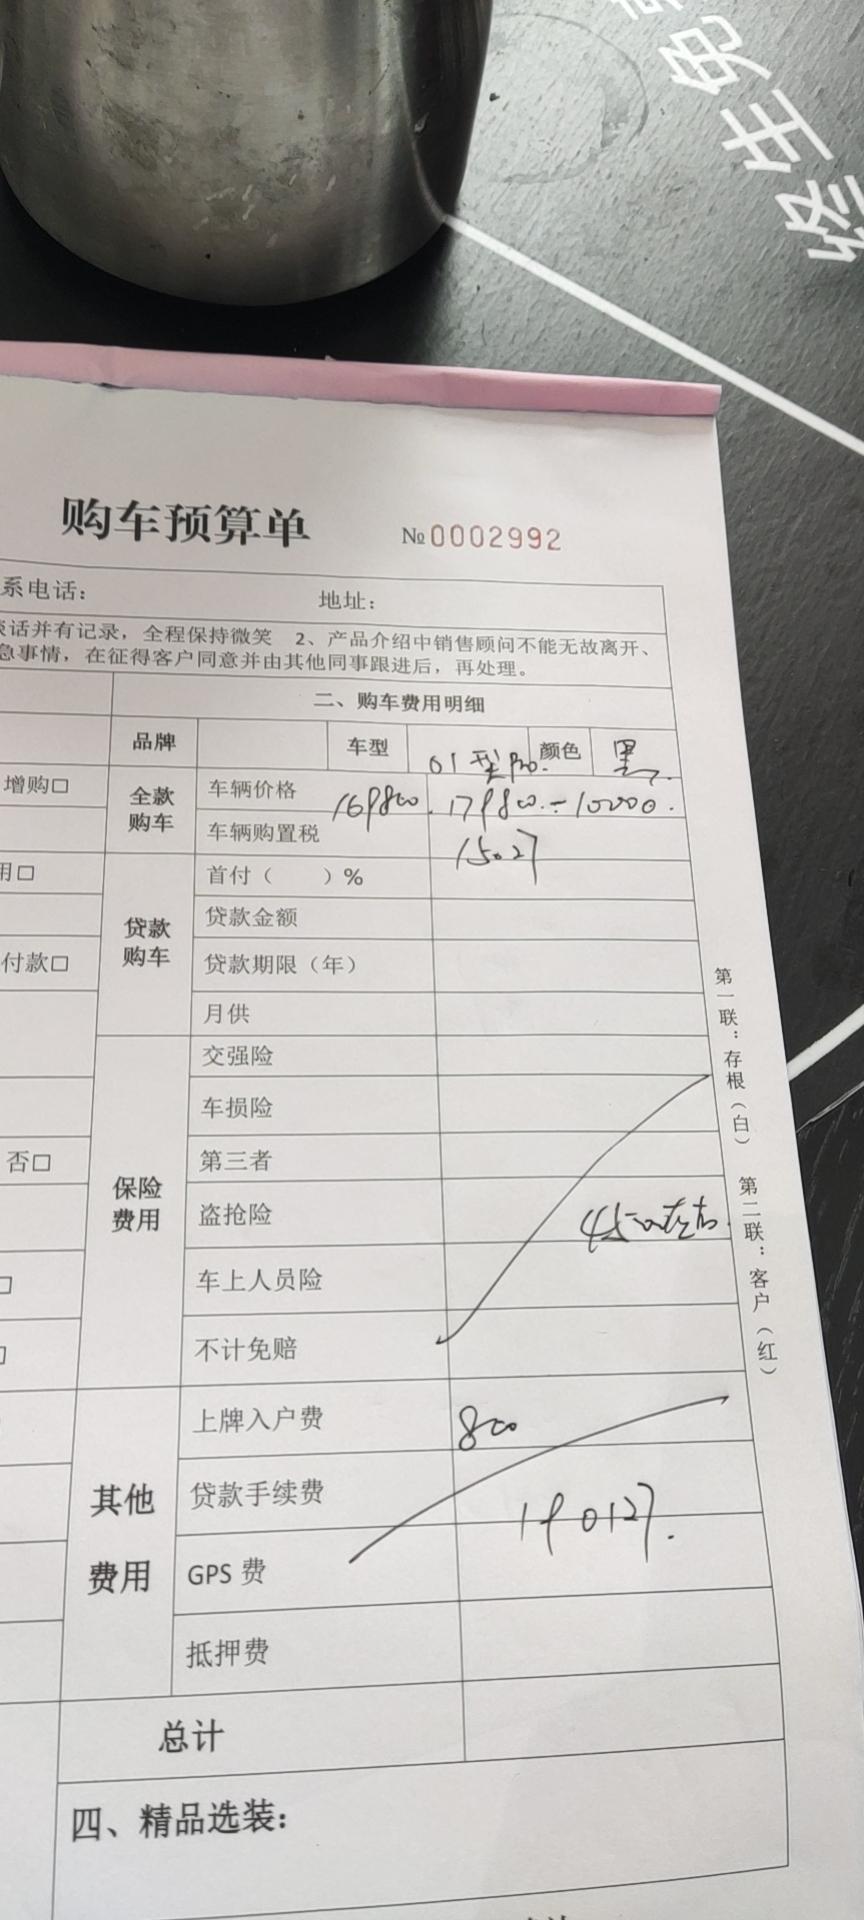 终生免
购车预算单 №0002992
系电话： 地址：
谈话并有记录，全程保持微笑 2、产品介绍中销售顾问不能无故离开、
急事情，在征得客户同意并由其他同事跟进后，再处理。
二、购车费用明细
品牌 车型 01型Pro. 颜色 黑
增购□
全款购车
车辆价格 169800. 179800.-10000.
车辆购置税 15027
用□
首付（ ）%
贷款购车
贷款金额
付款□
贷款期限（年）
月供
交强险
车损险
否□
第三者
保险费用
盗抢险 4500左右.
车上人员险
不计免赔
上牌入户费 800
其他费用
贷款手续费 190127.
GPS 费
抵押费
总计
四、精品选装：
第一联：存根（白） 第二联：客户（红）